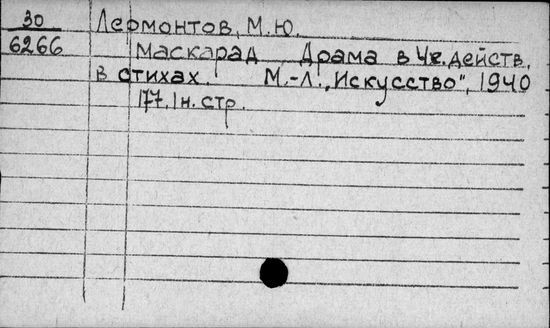 30
6266
Лермонтов, М.Ю.
Маскарад. Драма в 4х. действ.
в стихах. М.-Л. „Искусство", 1940
177, 1н. стр.